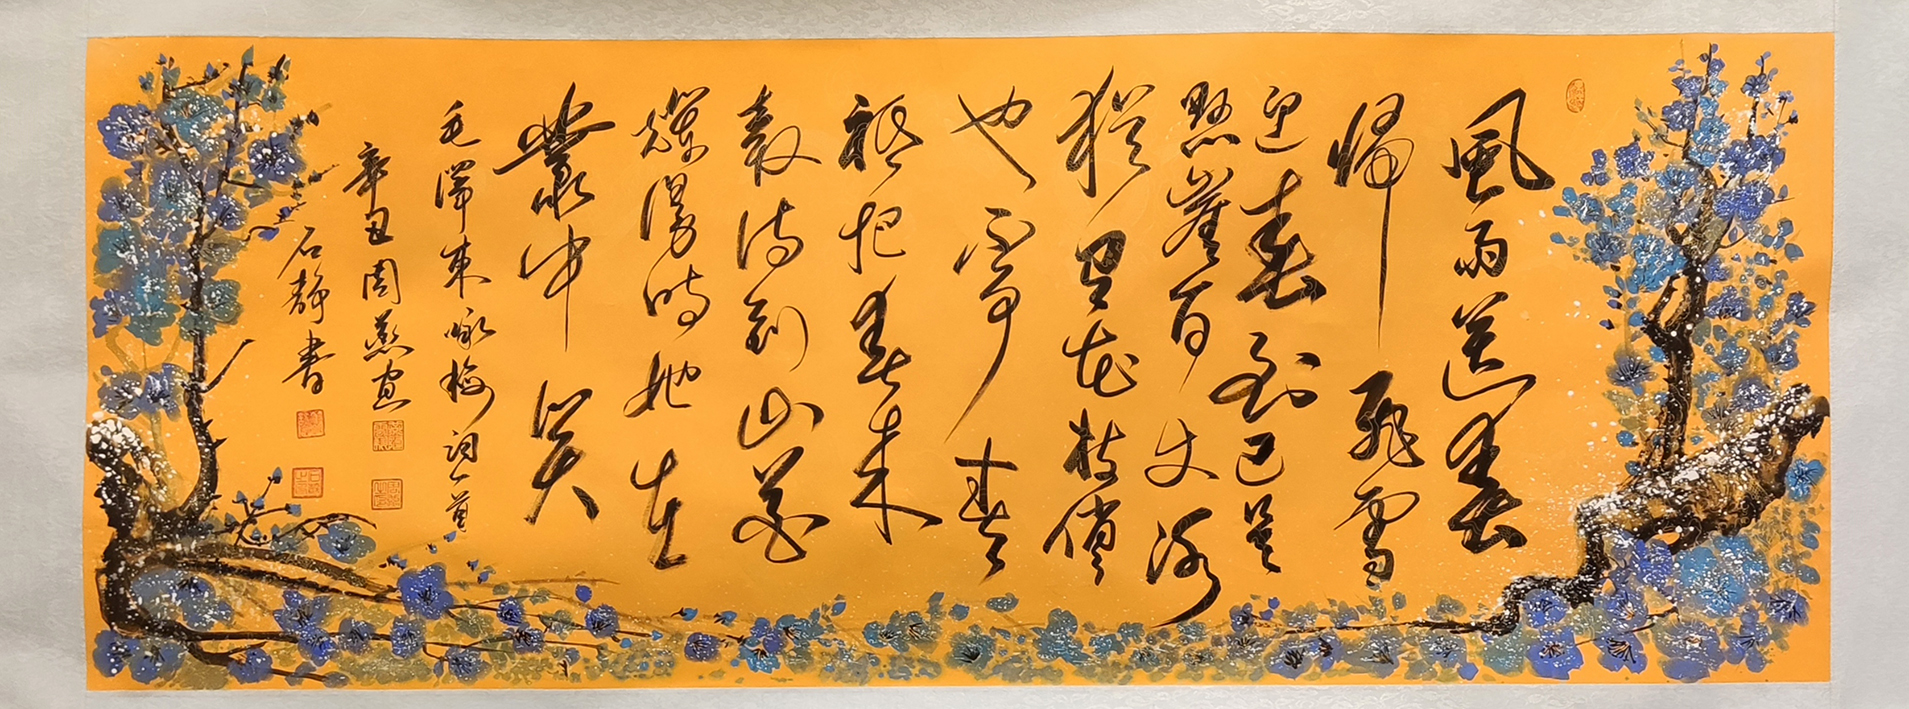 風雨送春
歸飛雪
迎春到已是
懸崖百丈冰
猶花枝俏
也不爭春
祇把春來
報待到山花
爛漫時她在
叢中笑
毛澤東咏梅詞一首
辛丑周燕画
石靜書